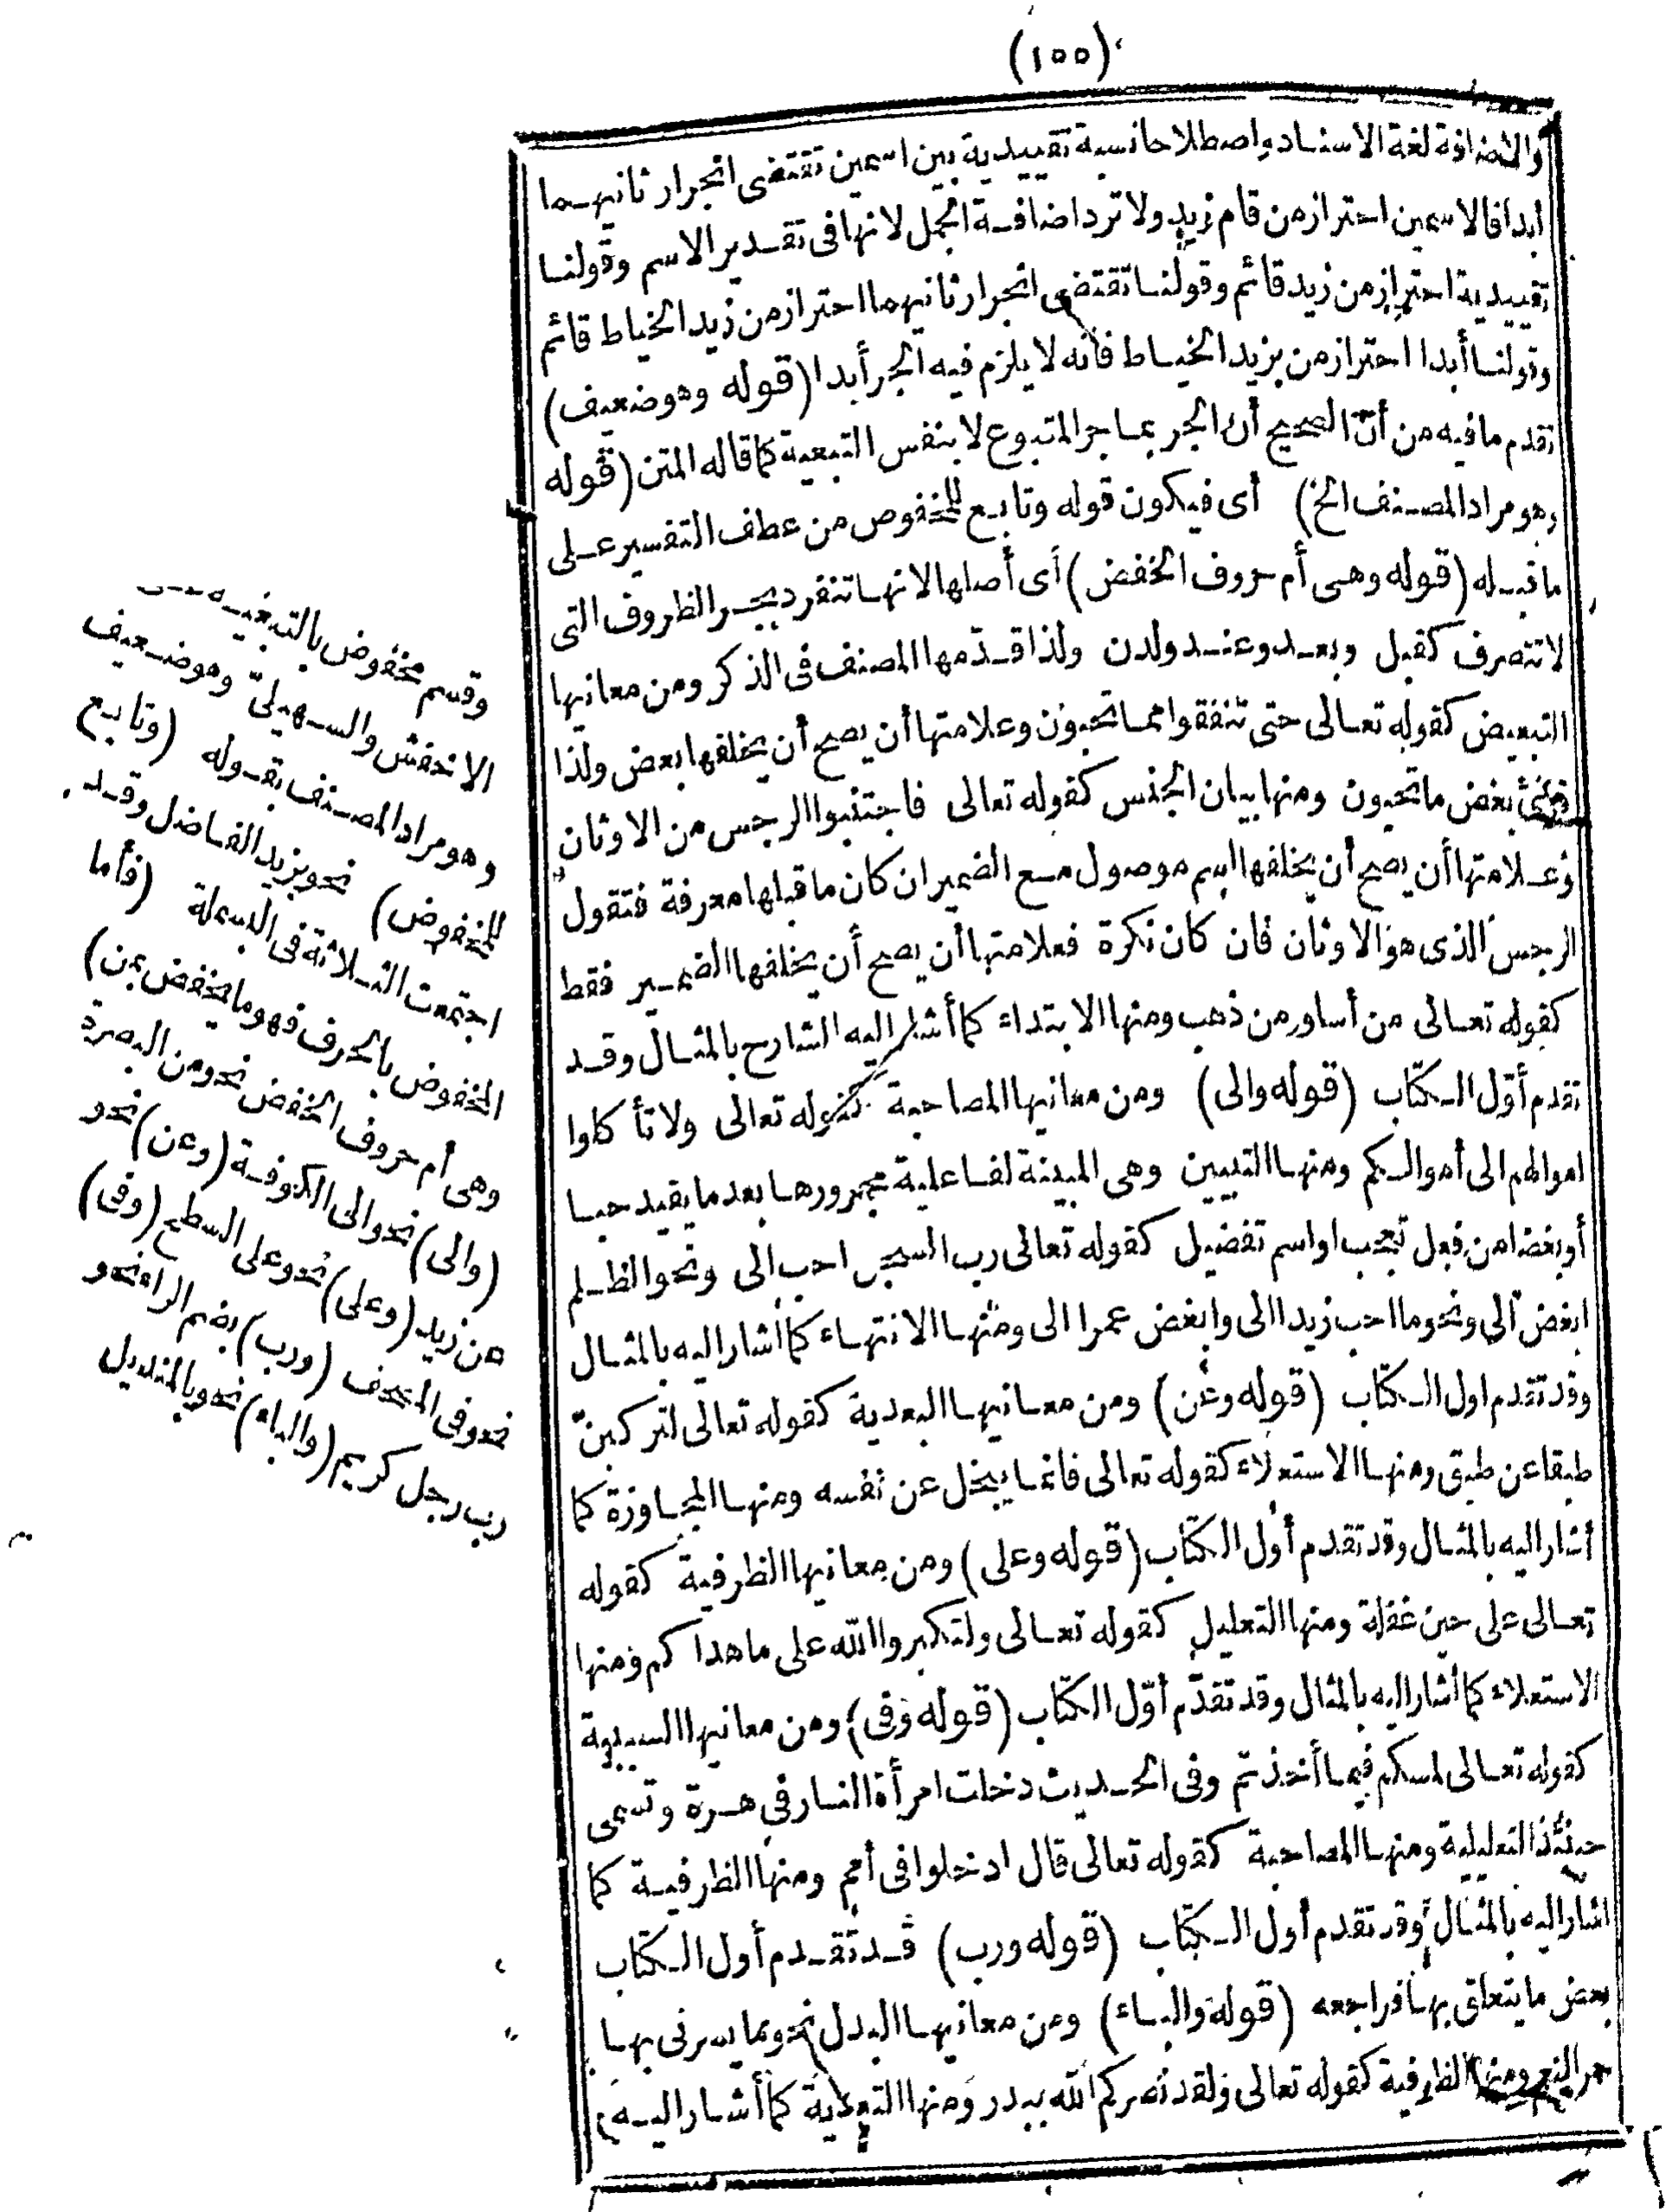 (١٥٥)
والاضافة لغة الاسناد واصطلاحا نسبة تقييدية بين اسمين تقتضى انجرار ثانيهما
أبدا فالاسمين احتراز من قام زيد ولا ترد اضافة الجمل لانها فى تقدير الاسم وقولنا
تقييدية احتراز من زيد قائم وقولنا تقتضى انجرار ثانيهما احتراز من زيد الخياط قائم
وقولنا أبدا احتراز من بزيد الخياط فانه لا يلزم فيه الجر أبدا (قوله وهو ضعيف)
تقدم ما فيه من أنّ الصحيح أن الجر بما جر المتبوع لا بنفس التبعية كما قاله المتن (قوله
وهو مراد المصنف الخ) أى فيكون قوله وتابع للمخفوص من عطف التفسير على
ما قبله (قوله وهى أم حروف الخفض) أى أصلها لانها تنفرد بجر الظروف التى
لا تتصرف كقبل وبعد وعند ولدن ولذا قدّمها المصنف فى الذكر ومن معانيها
التبعيض كقوله تعالى حتى تنفقوا مما تحبون وعلامتها أن يصح أن يخلفها بعض ولذا
قرئ بعض ما تحبون ومنها بيان الجنس كقوله تعالى فاجتنبوا الرجس من الاوثان
وعلامتها أن يصح أن يخلفها اسم موصول مع الضمير ان كان ما قبلها معرفة فتقول
الرجس الذى هو الاوثان فان كان نكرة فعلامتها أن يصح أن يخلفها الضمير فقط
كقوله تعالى من أساور من ذهب ومنها الابتداء كما أشار اليه الشارح بالمثال وقد
تقدم أوّل الكتاب (قوله والى) ومن معانيها المصاحبة كقوله تعالى ولا تأكلوا
اموالهم الى أموالكم ومنها التبيين وهى المبينة لفاعلية مجرورها بعد ما يفيد حبا
أو بغضا من فعل تعجب او اسم تفضيل كقوله تعالى رب السجن احب الى ونحو الظلم
ابغض الى ونحو ما احب زيدا الى وابغض عمرا الى ومنها الانتهاء كما أشار اليه بالمثال
وقد تقدم اول الكتاب (قوله وعن) ومن معانيها البعدية كقوله تعالى لتركبنّ
طبقا عن طبق ومنها الاستعلاء كقوله تعالى فانما يبخل عن نفسه ومنها المجاوزة كما
أشار اليه بالمثال وقد تقدم أول الكتاب (قوله وعلى) ومن معانيها الظرفية كقوله
تعالى على حين غفلة ومنها التعليل كقوله تعالى ولتكبروا الله على ما هداكم ومنها
الاستعلاء كما أشار اليه بالمثال وقد تقدّم أوّل الكتاب (قوله وفى) ومن معانيها السببية
كقوله تعالى لمسكم فيما أخذتم وفى الحديث دخلت امرأة النار فى هرة وتسمى
حينئذ التعليلية ومنها المصاحبة كقوله تعالى قال ادخلوا فى أمم ومنها الظرفية كما
اشار اليه بالمثال وقد تقدم أول الكتاب (قوله ورب) قد تقدم أول الكتاب
بعض ما يتعلق بها فراجعه (قوله والباء) ومن معانيها البدل نحو ما يسرنى بها
حمر النعم ومنها الظرفية كقوله تعالى ولقد نصركم الله ببدر ومنها التعدية كما أشار اليه
وقسم مخفوض بالتبعية
الاخفش والسهيلىّ وهو ضعيف
وهو مراد المصنف بقوله (وتابع
للمخفوض) نحو بزيد الفاضل وقد
اجتمعت الثلاثة فى البسملة (فأما
المخفوض بالحرف فهو ما يخفض بمن)
وهى أم حروف الخفض نحو من البصرة
(والى) نحو الى الكوفة (وعن) نحو
عن زيد (وعلى) نحو على السطح (وفى)
نحو فى المصحف (ورب) بضم الراء نحو
رب رجل كريم (والباء) نحو بالمنديل